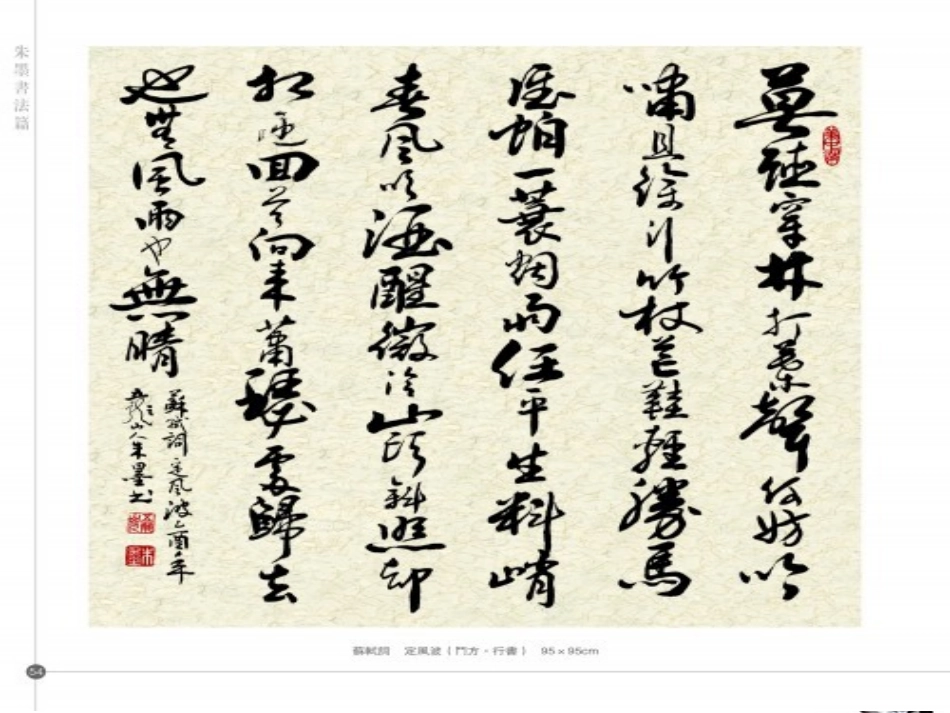 朱墨書法篇
莫聽穿林打葉聲何妨吟
嘯且徐行竹杖芒鞋輕勝馬
誰怕一蓑烟雨任平生料峭
春風吹酒醒微冷山頭斜照却
相迎回首向來蕭瑟處歸去
也無風雨也無晴
蘇軾詞定風波乙酉年
山人朱墨书
蘇軾詞 定風波（鬥方·行書） 95×95cm
54